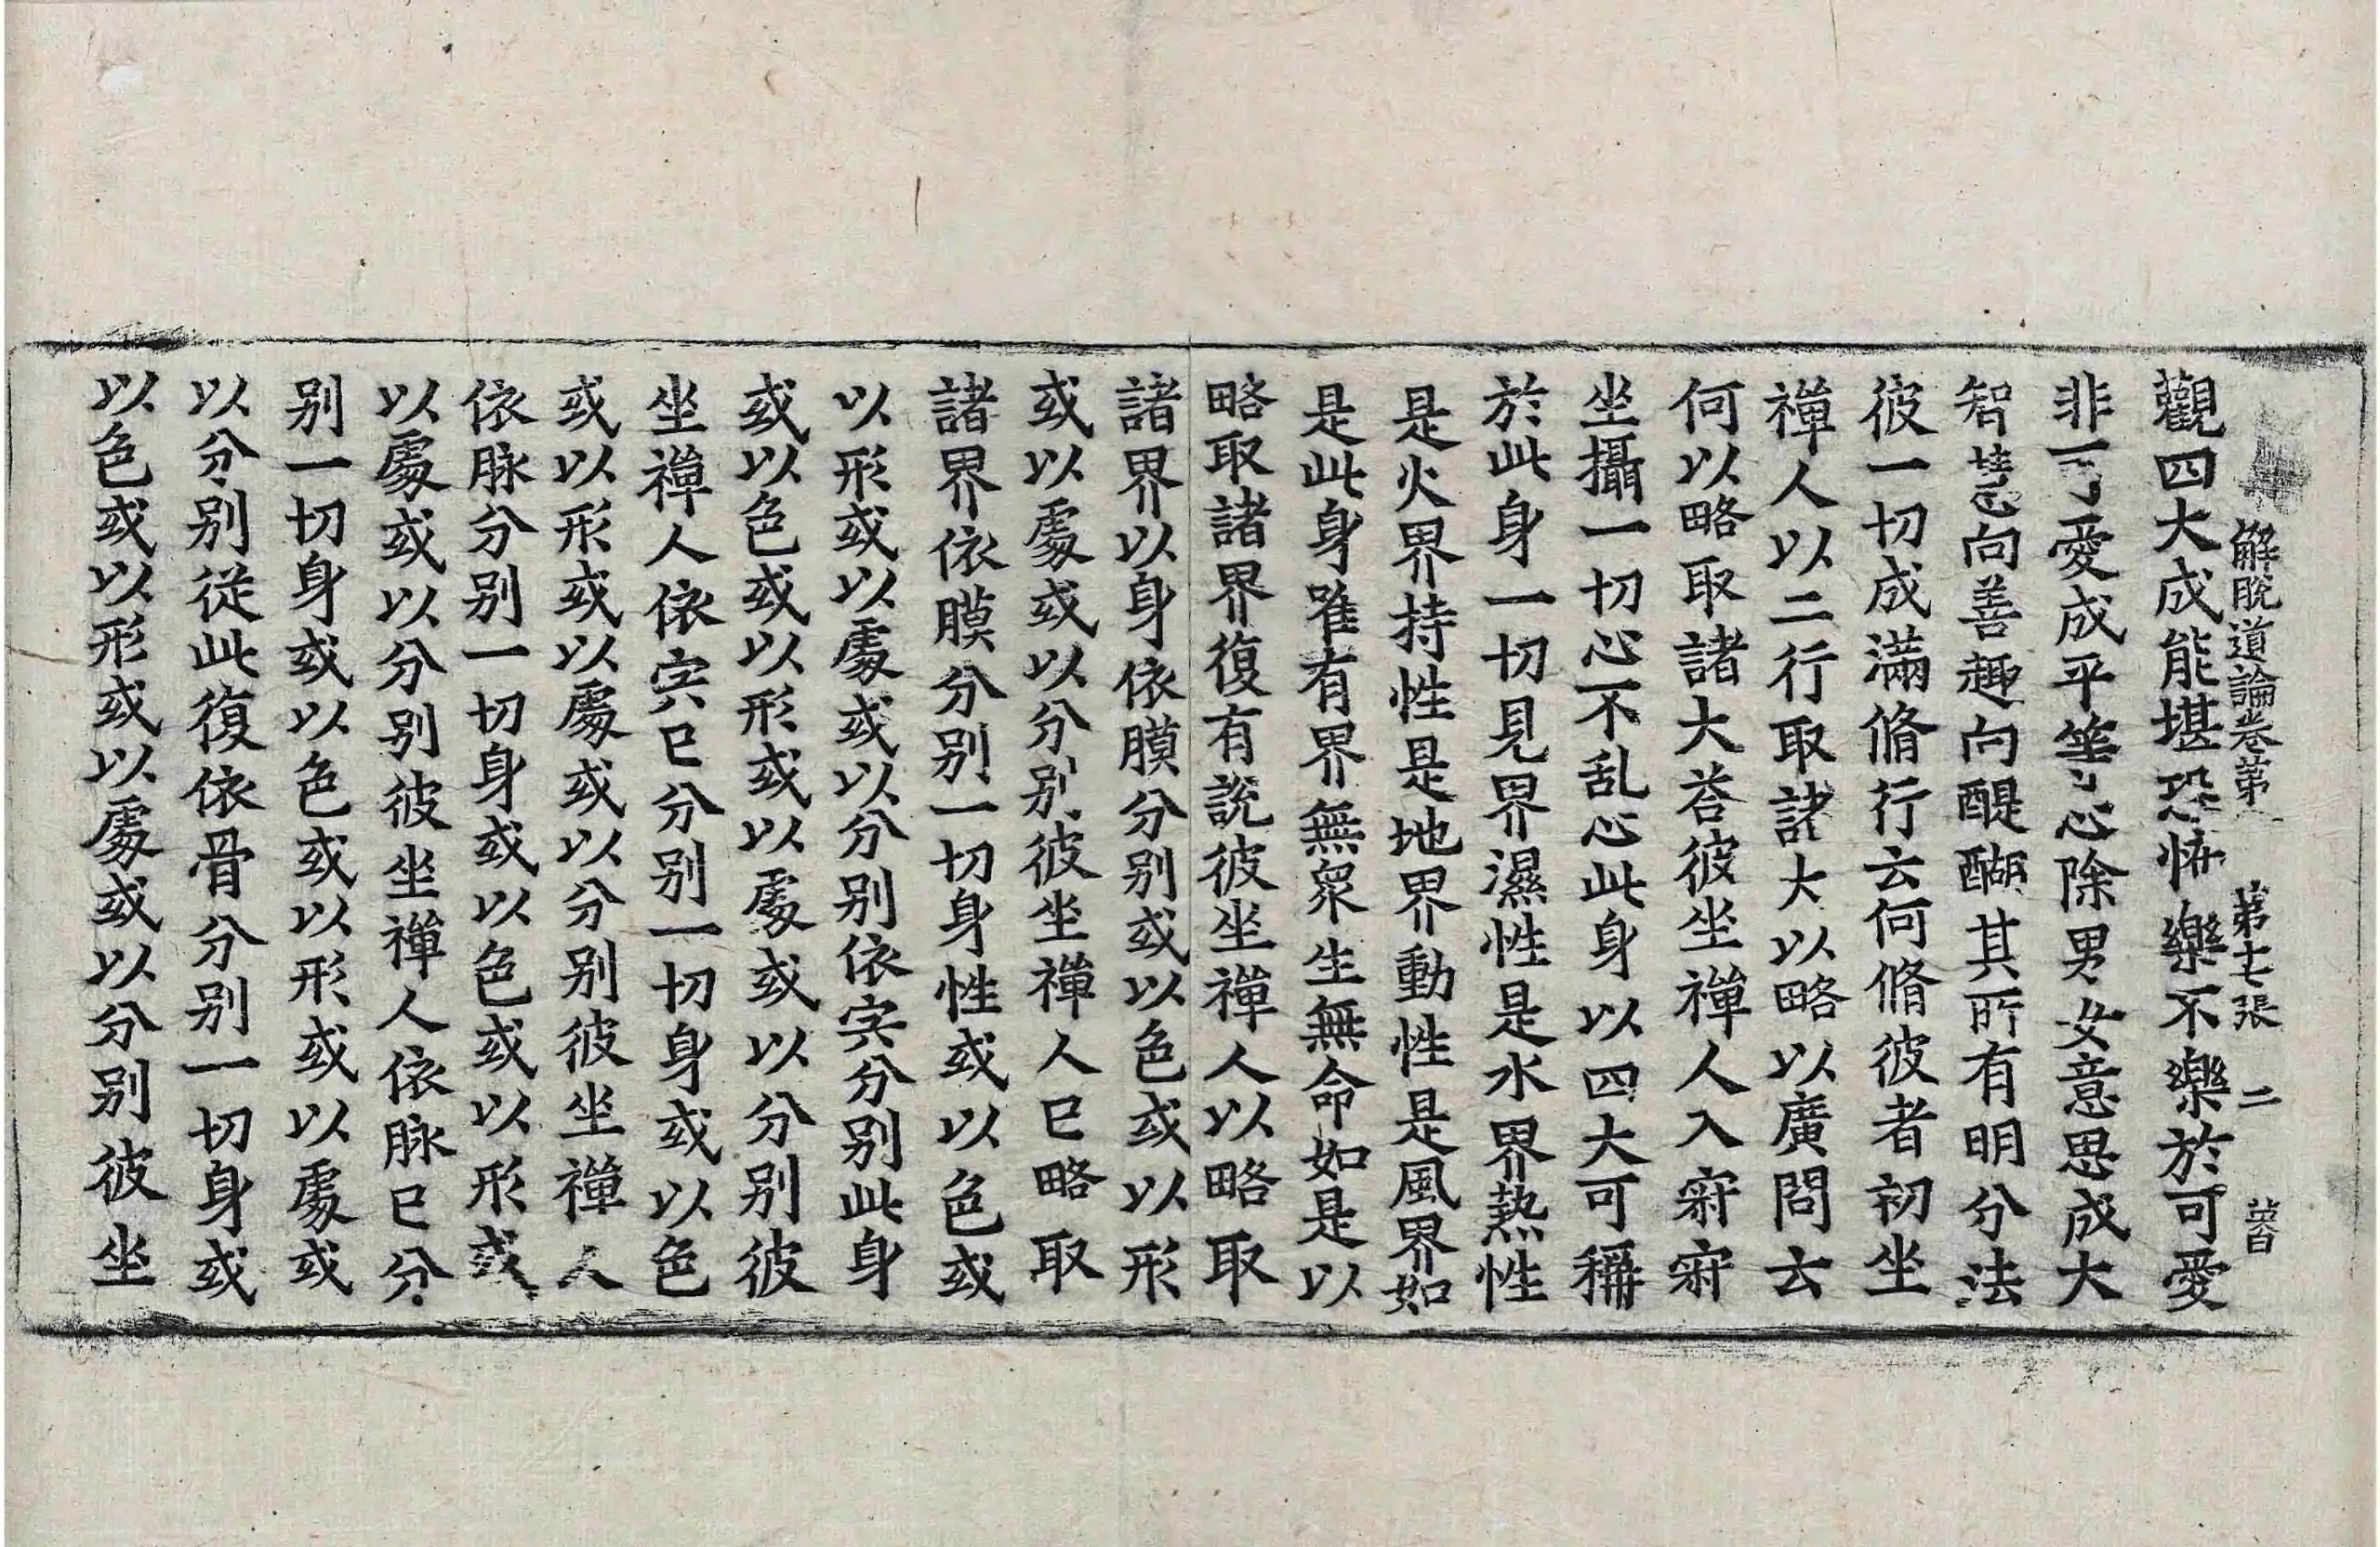 觀四大成能堪恐怖樂不樂於可愛
解脫道論卷第 第七張 二
非可愛成平等心除男女意思成大
智慧向善趣向醍醐其所有明分法
彼一切成滿脩行云何脩彼者初坐
禪人以二行取諸大以略以廣問云
何以略取諸大荅彼坐禪人入寂寂
坐攝一切心不乱心此身以四大可稱
於此身一切見界濕性是水界熱性
是火界持性是地界動性是風界如
是此身唯有界無衆生無命如是以
略取諸界復有說彼坐禪人以略取
諸界以身依膜分別或以色或以形
或以處或以分別彼坐禪人已略取
諸界依膜分別一切身性或以色或
以形或以處或以分別依宍分別此身
或以色或以形或以處或以分別彼
坐禪人依宍已分別一切身或以色
或以形或以處或以分別彼坐禪人
依脉分別一切身或以色或以形或
以處或以分別彼坐禪人依脉已分
別一切身或以色或以形或以處或
以分別從此復依骨分別一切身或
以色或以形或以處或以分別彼坐